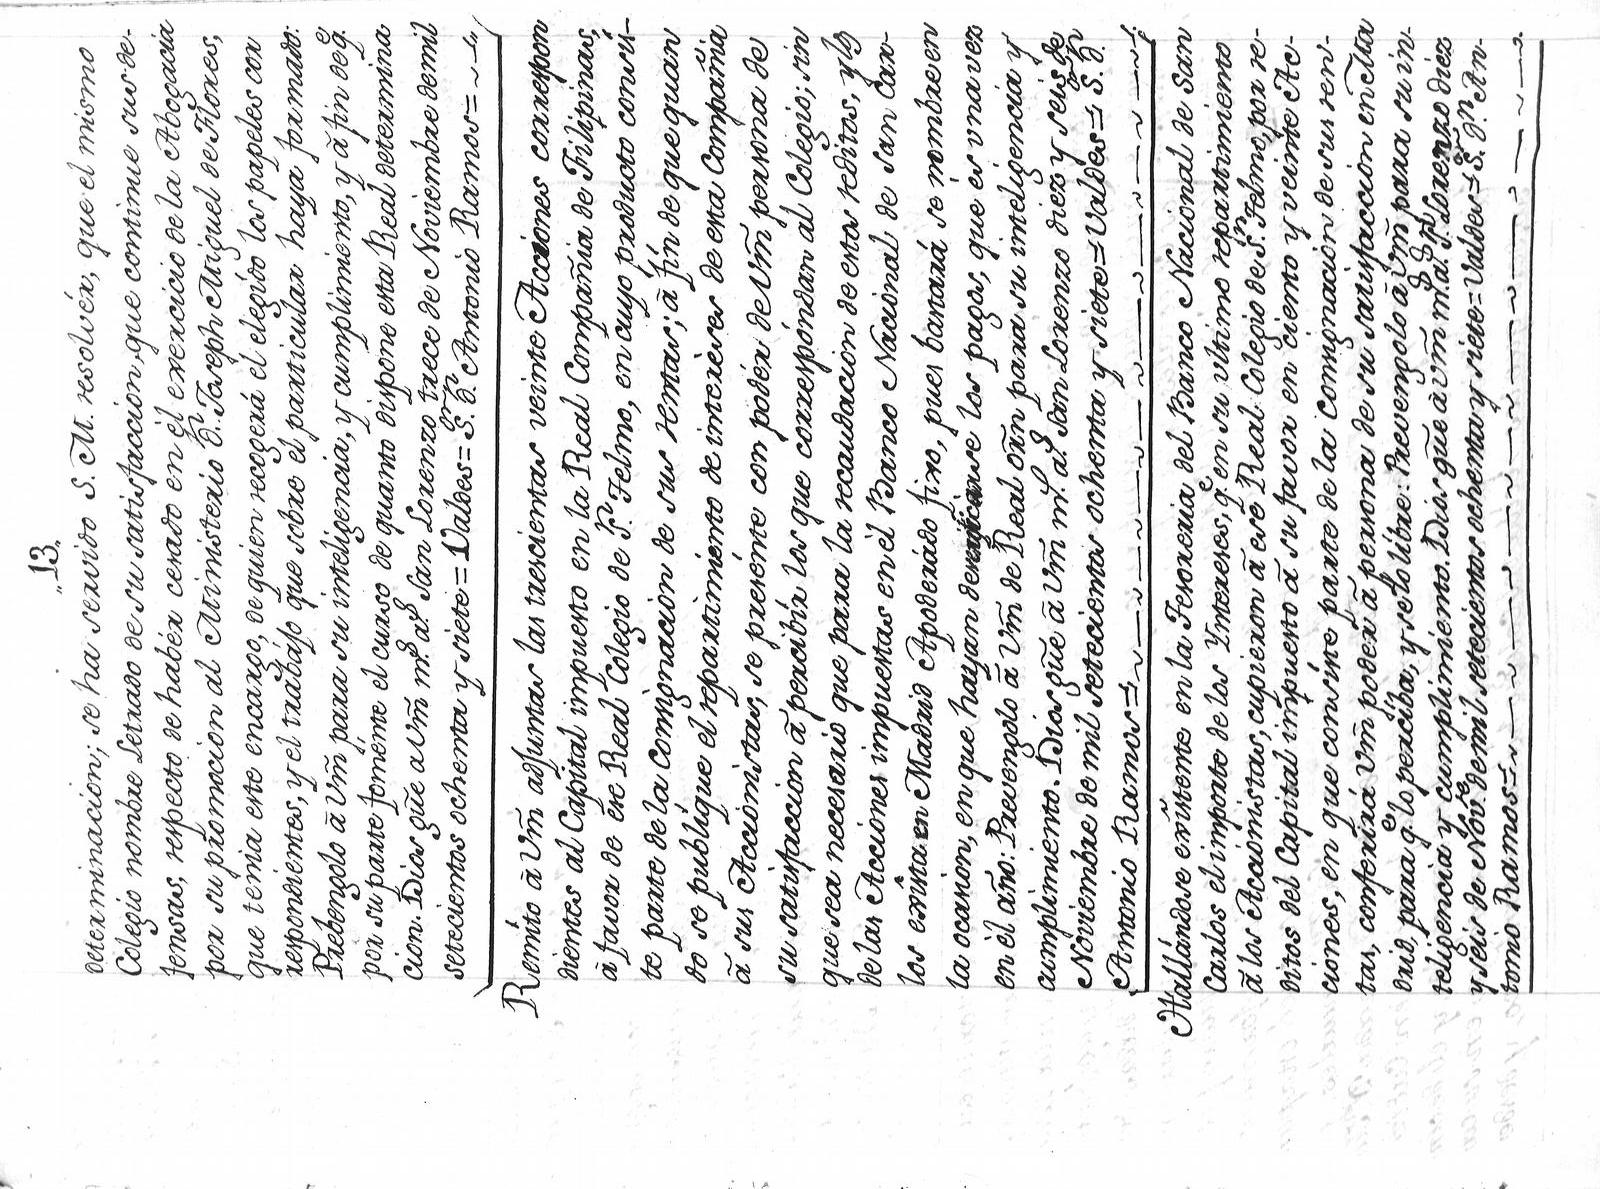 "13."
determinacion; se ha servido S. M. resolvér, que el mismo
Colegio nombre Letrado de su satisfaccion, que continúe sus de-
fensas, respecto de habér cesado en él exercicio de la Abogacía
por su promocion al Ministerio Dn. Joseph Miguel de Flores,
que tenia este encargo, de quien recogerá el elegido los papeles cor
respondientes, y el trabájo que sobre el particular haya formado:
Prebengolo â Vm̃ para su inteligencia, y cumplimiento, y â fin de qe.
por su parte foménte el curso de quanto dispone esta Real determina
cion. Dios gũe a Vm̃ ms. as. San Lorenzo trece de Noviembre de mil
setecientos ochenta y siete = Valdes = Sor. Dn. Antonio Ramos = ~ ~
Remíto â Vm̃ adjuntas las trescientas veinte Acciones correspon
dientes al Capítal impuesto en la Real Compañia de Filipinas,
â favor de ese Real Colegio de Sn. Telmo, en cuyo producto consis-
te parte de la Consignacion de sus rentas; â fin de que quan
do se publíque el repartimiento de interéses de esta Compañia
â sus Accionistas, se presénte con podér de Vm̃ persona de
su satisfaccion â percibír los que correspóndan al Colegio; sin
que sea necesario que para la recaudacion de estos reditos, y ls
de las Acciones impuestas en él Banco Nacional de San Car-
los exîsta en Madrid Apoderádo fixo, pues bastará se nombre en
la ocasion, en que hayan de verificarse los pagos, que es una vez
en él año: Prevengolo â Vm̃ de Real orñ para su inteligencia y
cumplimiento. Dios gũe â Vm̃ ms. as. San Lorenzo diez y seis de
Noviembre de mil setecientos ochenta y siete = Valdes = Sor. Dn.
Antonio Ramos = ~
Hallándose exîstente en la Tesoreria del Banco Nacional de San
Carlos el importe de los Yntereses, qe. en su último repartimiento
â los Accionistas, cupieron â ese Real Colegio de Sn. Telmo, por re-
ditos del Capital impuesto â su favor en ciento y veinte Ac-
ciones, en que consiste parte de la consignacion de sus ren-
tas, conferirá Vm̃ poder â persona de su satisfaccion en esta
drid, para qe. lo perciba, y se lo libre: Prevengolo â Vm̃ para su in-
teligencia y cumplimiento. Dios gũe â Vm̃ ms. as. Sn. Lorenzo diez
y seis de Novre. de mil setecientos ochenta y siete = Valdes = Sor. Dn. An-
tonio Ramos = ~